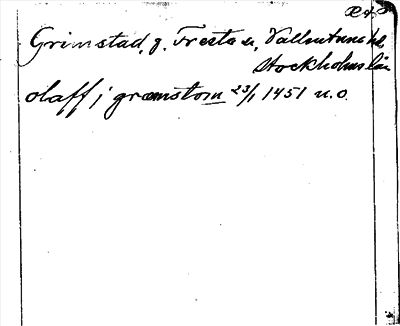 Grimstad, g. Fresta sn, Vallentuna hd,
Stockholms län
olaff j græmstom 23/1 1451 n.o.